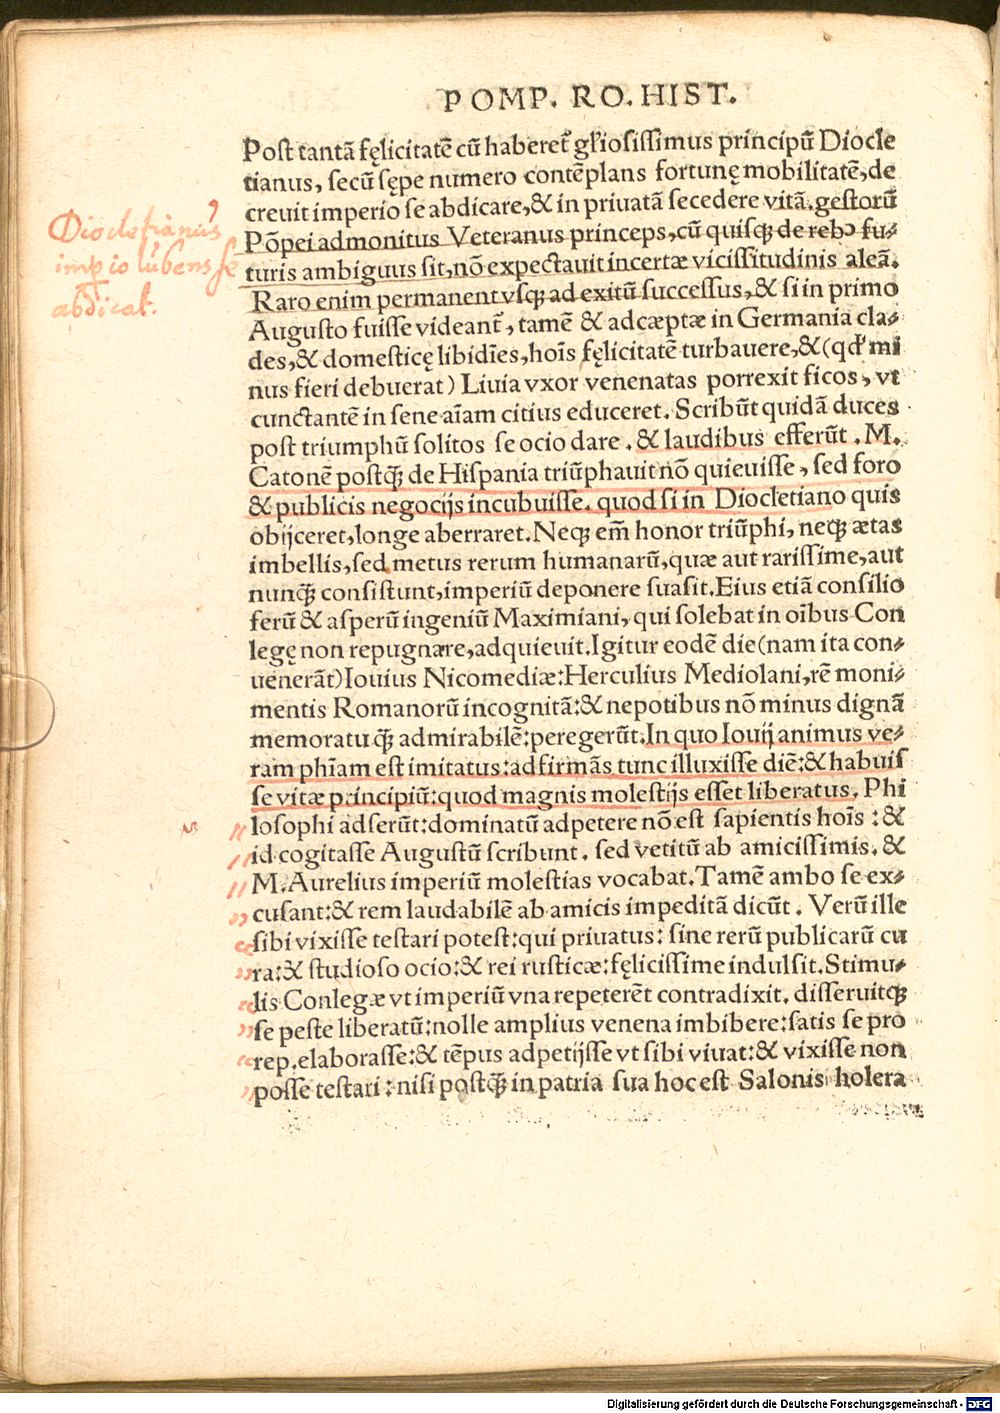 POMP. RO. HIST.
Post tantã fęlicitatẽ cũ haberet᷑ gl'iosissimus principũ Diocle
tianus, secũ sępe numero contẽplans fortunę mobilitatẽ, de
creuit imperio se abdicare, & in priuatã secedere vitã. gestorũ
Põpei admonitus Veteranus princeps, cũ quisqȝ de rebꝰ fu-
turis ambiguus sit, nõ expectauit incertæ vicissitudinis aleã.
Raro enim permanent vsqȝ ad exitũ successus, & si in primo
Augusto fuisse videant᷑, tamẽ & adcæptæ in Germania cla-
des, & domesticę libidĩes, hoĩs fęlicitatẽ turbauere, & (qd' mi
nus fieri debuerat) Liuia vxor venenatas porrexit ficos, vt
cunctantẽ in sene aĩam citius educeret. Scribũt quidã duces
post triumphũ solitos se ocio dare. & laudibus efferũt. M.
Catonẽ postqȝ̃ de Hispania triũphauit nõ quieuisse, sed foro
& publicis negocijs incubuisse. quod si in Diocletiano quis
obijceret, longe aberraret. Neqȝ em̃ honor triũphi, neqȝ ætas
imbellis, sed metus rerum humanarũ, quæ aut rarissime, aut
nunqȝ̃ consistunt, imperiũ deponere suasit. Eius etiã consilio
ferũ & asperũ ingeniũ Maximiani, qui solebat in oĩbus Con
legę non repugnare, adquieuit. Igitur eodẽ die (nam ita con-
uenerãt) Iouius Nicomediæ: Herculius Mediolani, rẽ moni-
mentis Romanorũ incognitã: & nepotibus nõ minus dignã
memoratu qȝ̃ admirabilẽ: peregerũt. In quo Iouij animus ve-
ram phĩam est imitatus: adfirmãs tunc illuxisse diẽ: & habuis
se vitæ principiũ: quod magnis molestijs esset liberatus. Phi
losophi adserũt: dominatũ adpetere nõ est sapientis hoĩs: &
id cogitasse Augustũ scribunt. sed vetitũ ab amicissimis. &
M. Aurelius imperiũ molestias vocabat. Tamẽ ambo se ex-
cusant: & rem laudabilẽ ab amicis impeditã dicũt. Verũ ille
sibi vixisse testari potest: qui priuatus: sine rerũ publicarũ cu
ra: & studioso ocio: & rei rusticæ: fęlicissime indulsit. Stimu-
lis Conlegæ vt imperiũ vna repeterẽt contradixit. disseruitqȝ
se peste liberatũ: nolle amplius venena imbibere: satis se pro
rep. elaborasse: & tẽpus adpetijsse vt sibi viuat: & vixisse non
posse testari: nisi postqȝ̃ in patria sua hoc est Salonis holera
Diocletianus
imp̃io lubens se
abdicat.
Digitalisierung gefördert durch die Deutsche Forschungsgemeinschaft - DFG